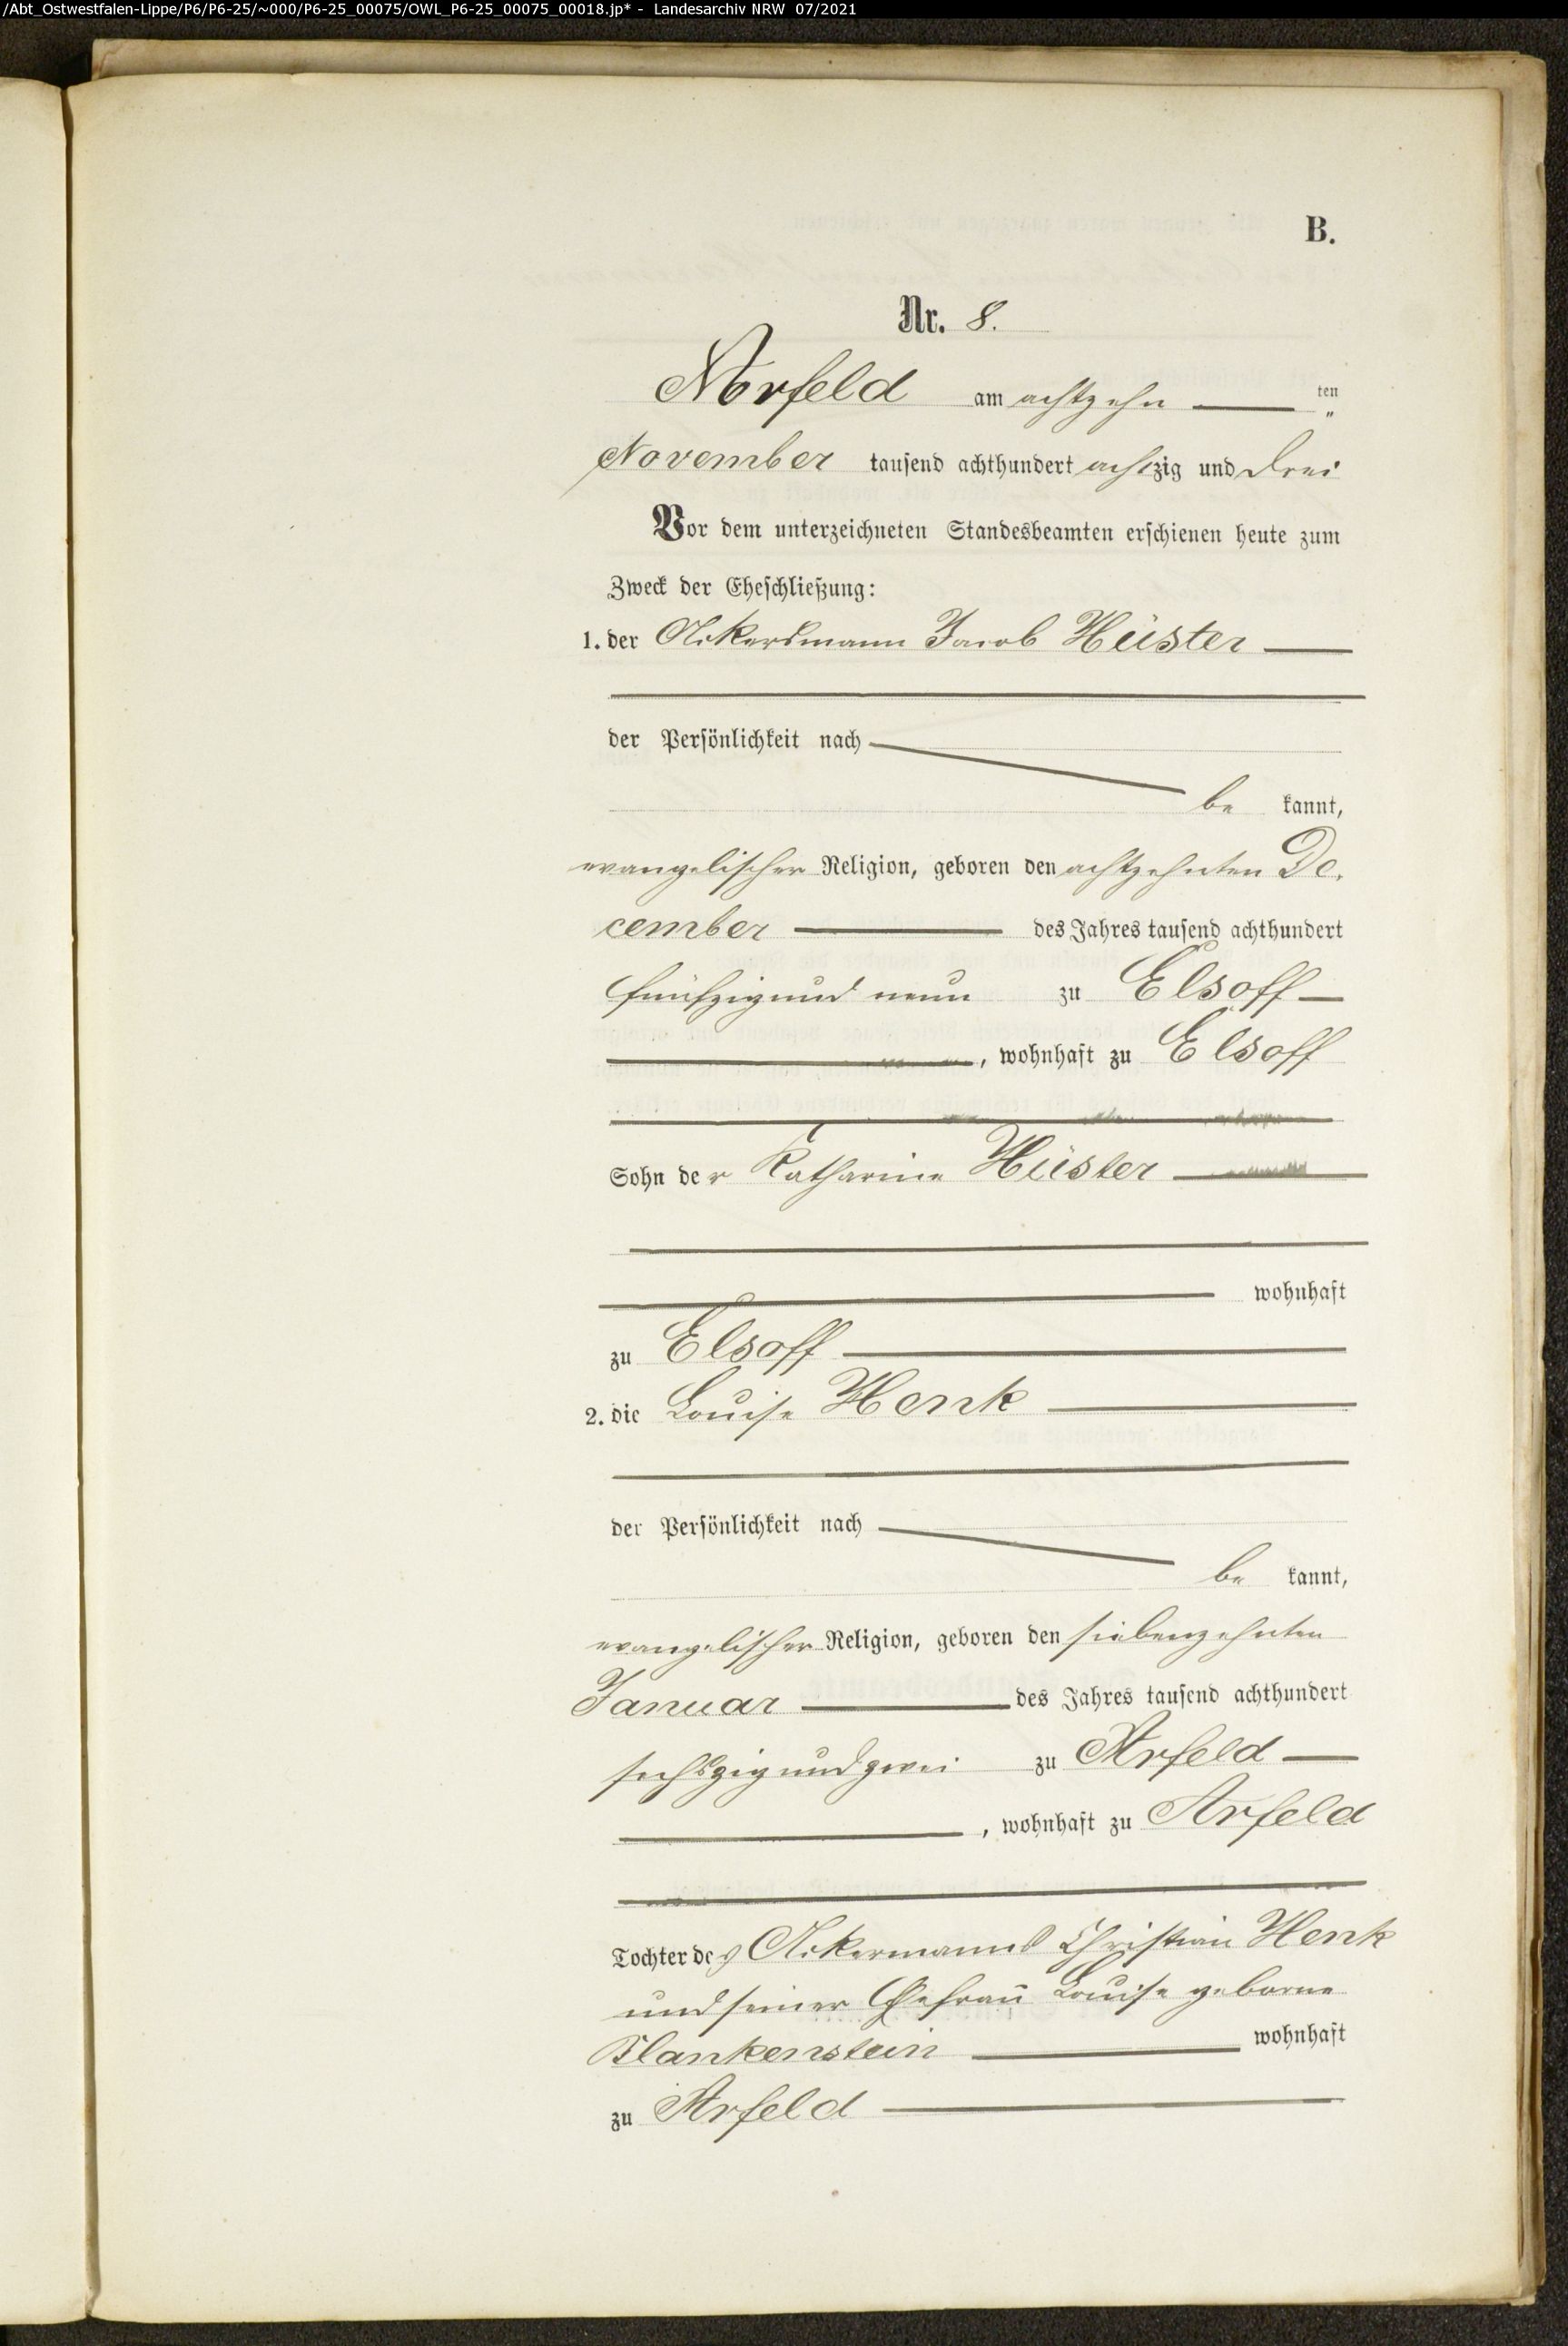 /Abt_Ostwestfalen-Lippe/P6/P6-25/~000/P6-25_00075/OWL_P6-25_00075_00018.jp* - Landesarchiv NRW 07/2021
B.
Nr. 8.
Arfeld am achtzehn ten
"
November tausend achthundert achtzig und drei
Vor dem unterzeichneten Standesbeamten erschienen heute zum
Zweck der Eheschließung:
1. der Ackersmann Jacob Hüster
der Persönlichkeit nach
be kannt,
evangelischer Religion, geboren den achtzehnten De-
cember des Jahres tausend achthundert
fünfzig und neun zu Elsoff
, wohnhaft zu Elsoff
Sohn der Katharine Hüster
wohnhaft
zu Elsoff
2. die Louise Henk
der Persönlichkeit nach
be kannt,
evangelischer Religion, geboren den siebenzehnten
Januar des Jahres tausend achthundert
sechszig und zwei zu Arfeld
, wohnhaft zu Arfeld
Tochter des Ackermanns Christian Henk
und seiner Ehefrau Louise geborne
Blankenstein wohnhaft
zu Arfeld